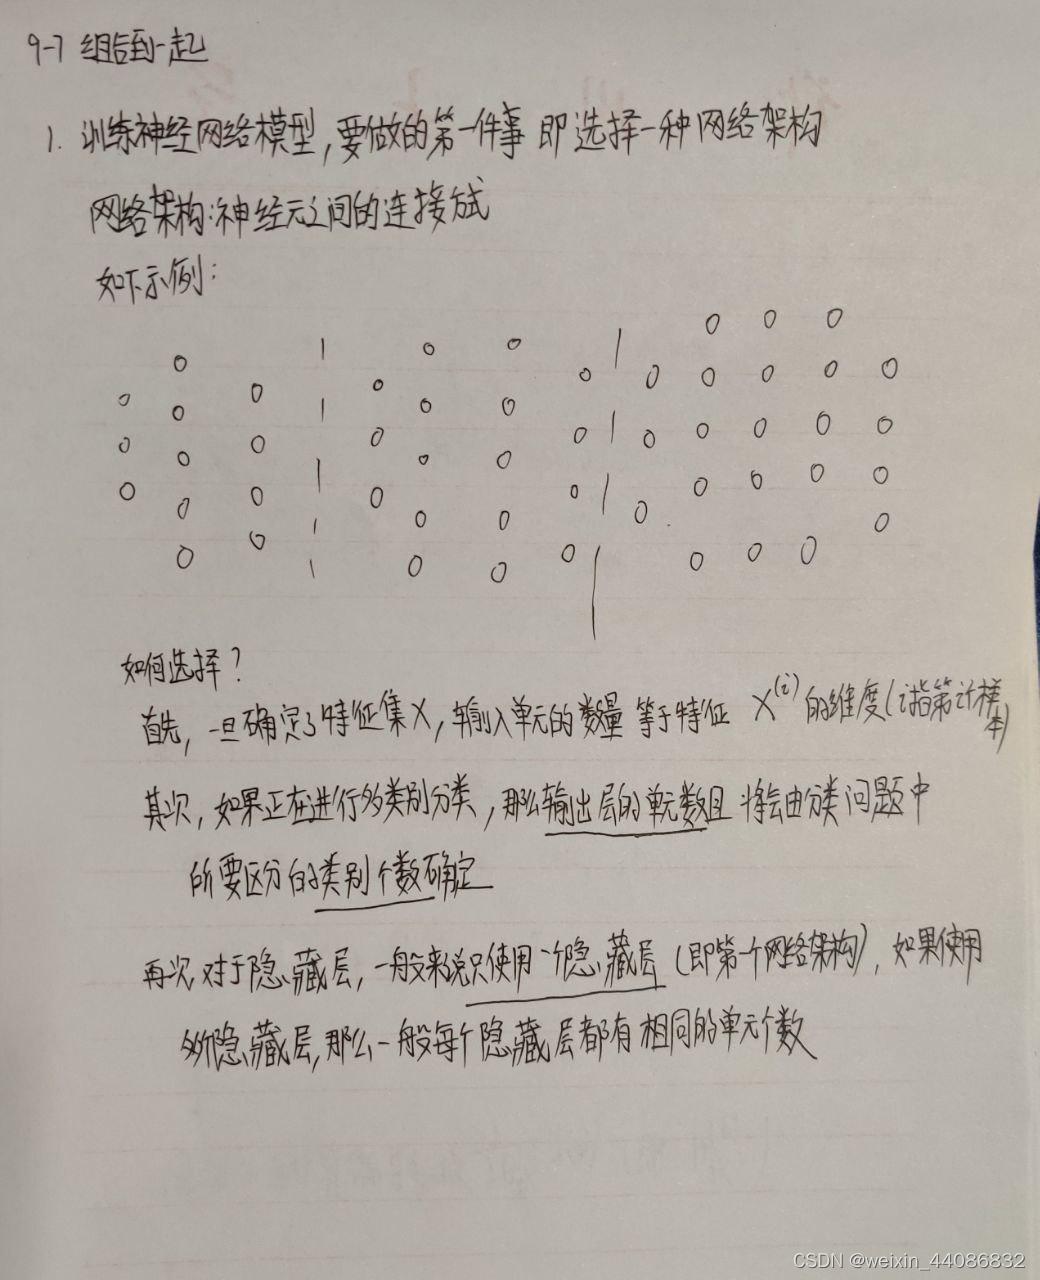 9-7 组合到一起
1. 训练神经网络模型,要做的第一件事 即 选择一种网络架构
网络架构:神经元之间的连接方式
如下示例:
如何选择?
首先,一旦确定了特征集X,输入单元的数量 等于特征 X(i) 的维度(i指第i个样本)
其次,如果正在进行多类别分类,那么输出层的单元数目 将会由分类问题中
所要区分的类别个数确定
再次,对于隐藏层,一般来说只使用一个隐藏层(即第一个网络架构),如果使用
多个隐藏层,那么一般每个隐藏层都有相同的单元个数
CSDN @weixin_44086832